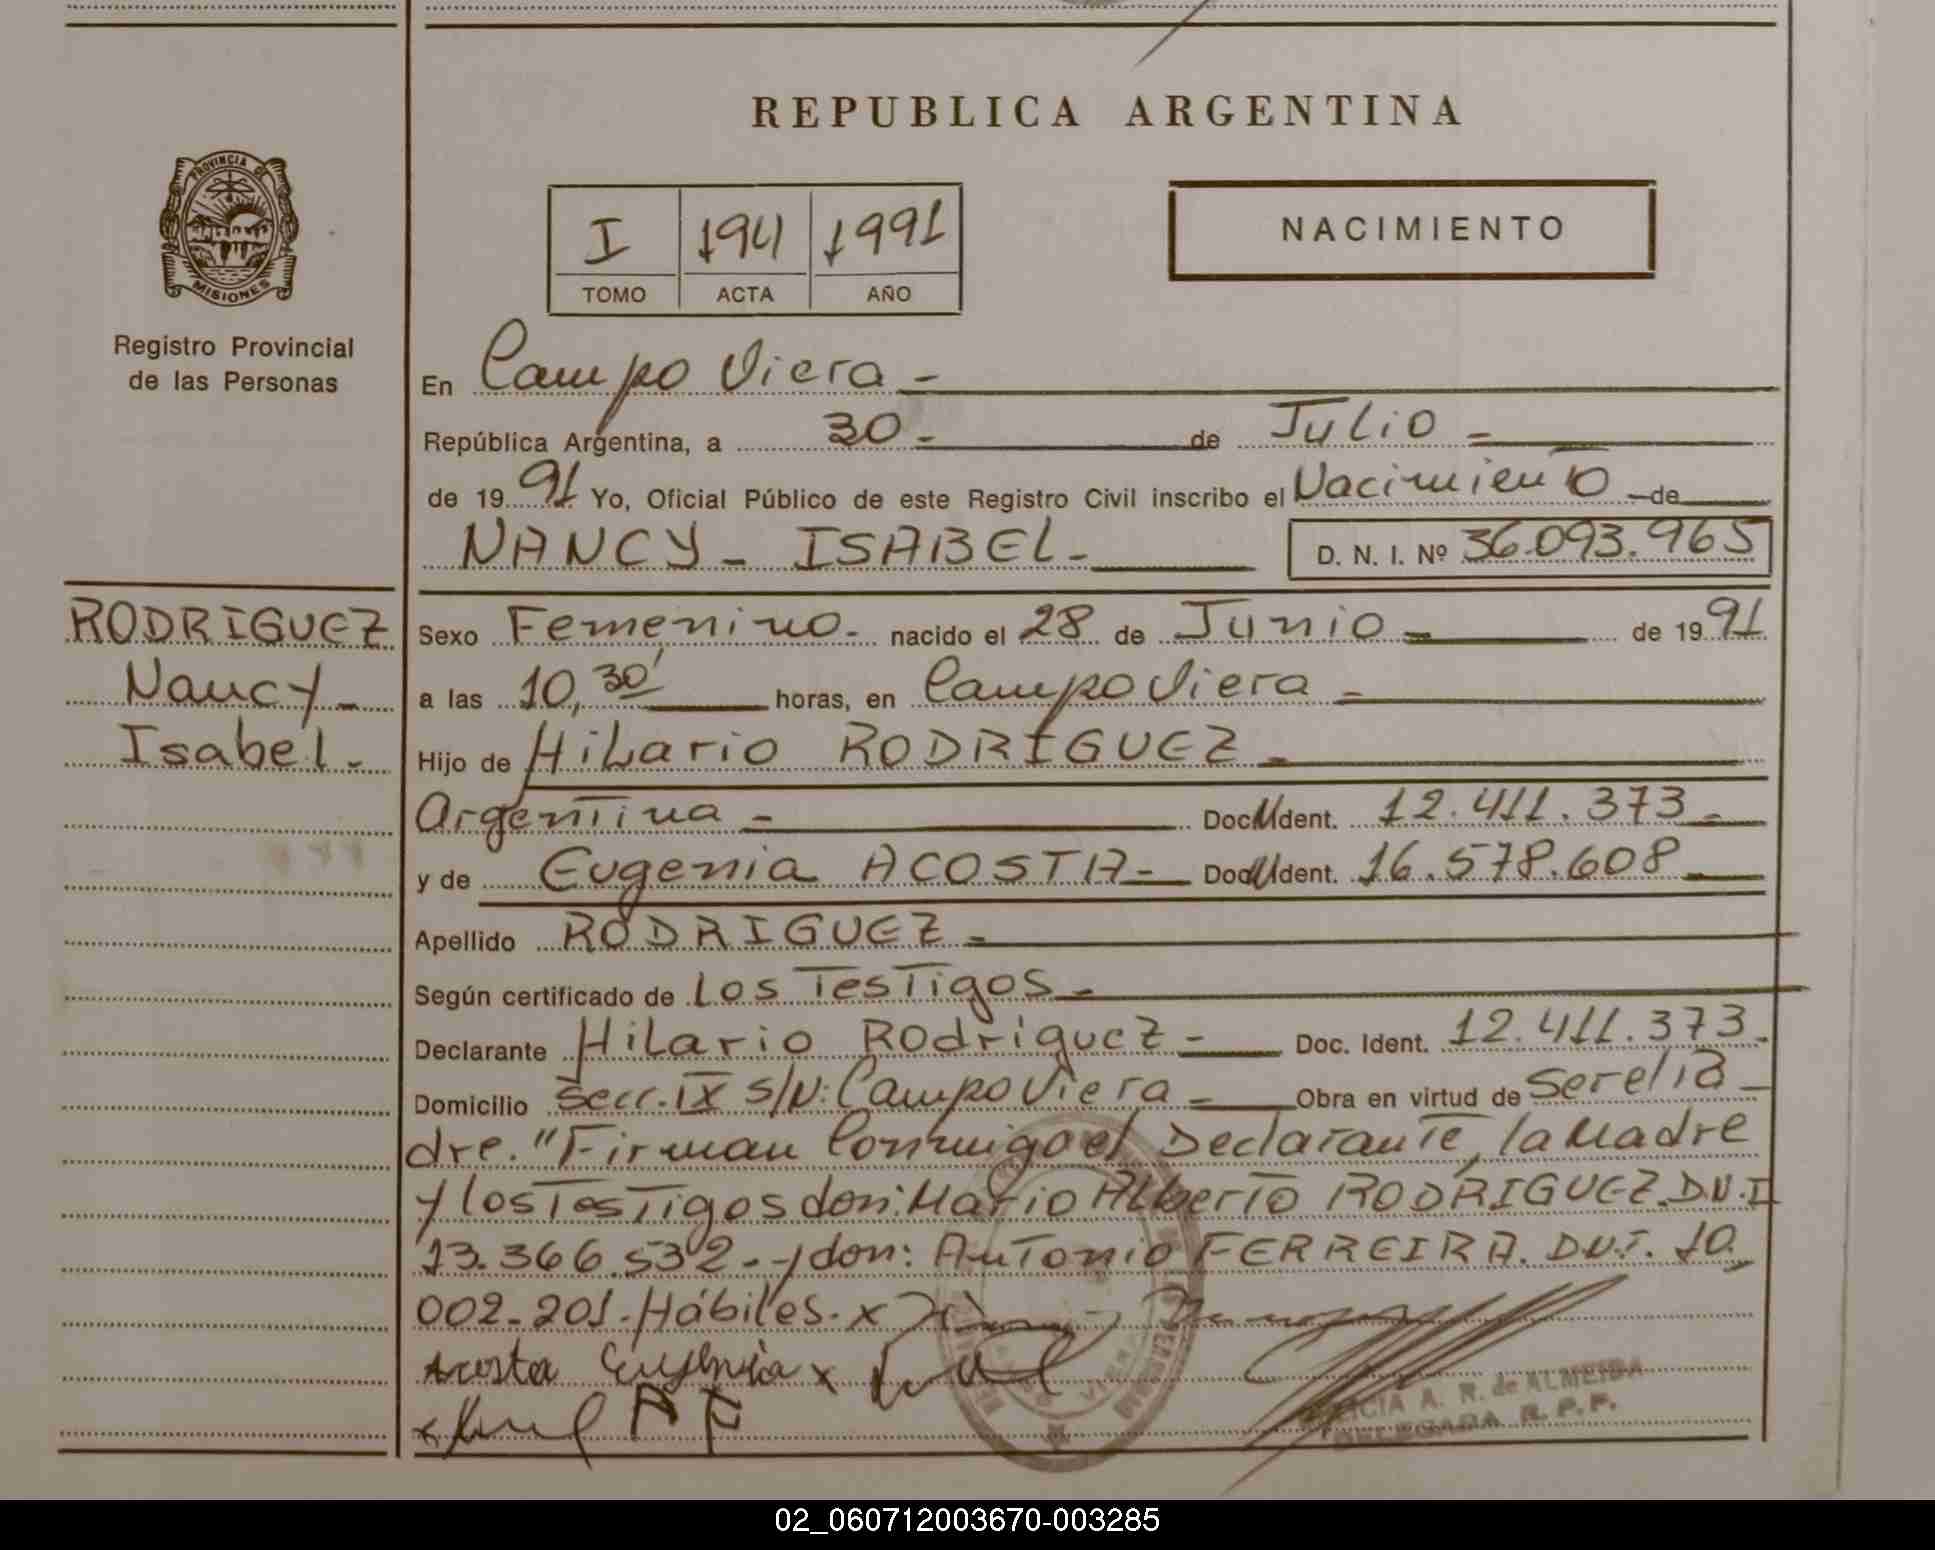 REPUBLICA ARGENTINA
PROVINCIA DE
MISIONES
Registro Provincial
de las Personas
I 194 1991
TOMO ACTA AÑO
NACIMIENTO
En Campo Viera -
República Argentina, a 30 - de Julio -
de 19 91 Yo, Oficial Público de este Registro Civil inscribo el Nacimiento de
NANCY - ISABEL - D. N. I. Nº 36.093.965
RODRIGUEZ
Nancy -
Isabel -
Sexo Femenino - nacido el 28 de Junio - de 19 91
a las 10,30' horas, en Campo Viera -
Hijo de Hilario RODRIGUEZ -
Argentina - Doc. Ident. 12.411.373 -
y de Eugenia ACOSTA - Doc. Ident. 16.578.608
Apellido RODRIGUEZ -
Según certificado de Los Testigos -
Declarante Hilario Rodriguez - Doc. Ident. 12.411.373 -
Domicilio Secc. IX S/N: Campo Viera - Obra en virtud de Ser el Pa-
dre. "Firman Conmigo el Declarante, la Madre
y los Testigos don: Mario Alberto RODRIGUEZ. D.N.I
13.366.532 - y don: Antonio FERREIRA. D.N.I. 10.
002.201. Hábiles. x
Acosta Eugenia x
x A F
A. R. de ALMEIDA
DELEGADA R. P. P.
02_060712003670-003285